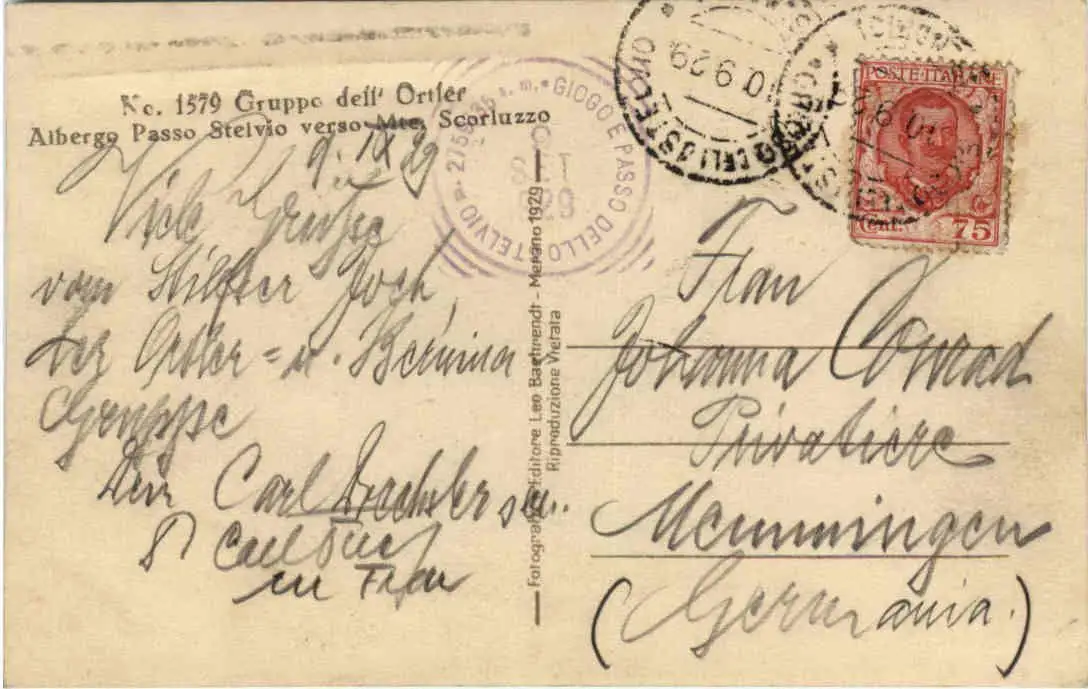 No. 1579 Gruppo dell' Ortler
Albergo Passo Stelvio verso Mte. Scorluzzo
9. IX 29
Viele Grüsse
vom Stilfser Joch,
der Ortler = u. Bernina
Gruppe
Dein Carl Drechsler sen.
Carl
u Frau
GIOGO E PASSO DELLO STELVIO
9
SET
29
10.9.29
10.9.29
POSTE ITALIANE
Cent. 75
Fotografia-Editore Leo Baehrendt - Merano 1929
Riproduzione Vietata
Frau
Johanna Conrad
Privatiere
Memmingen
(Germania.)